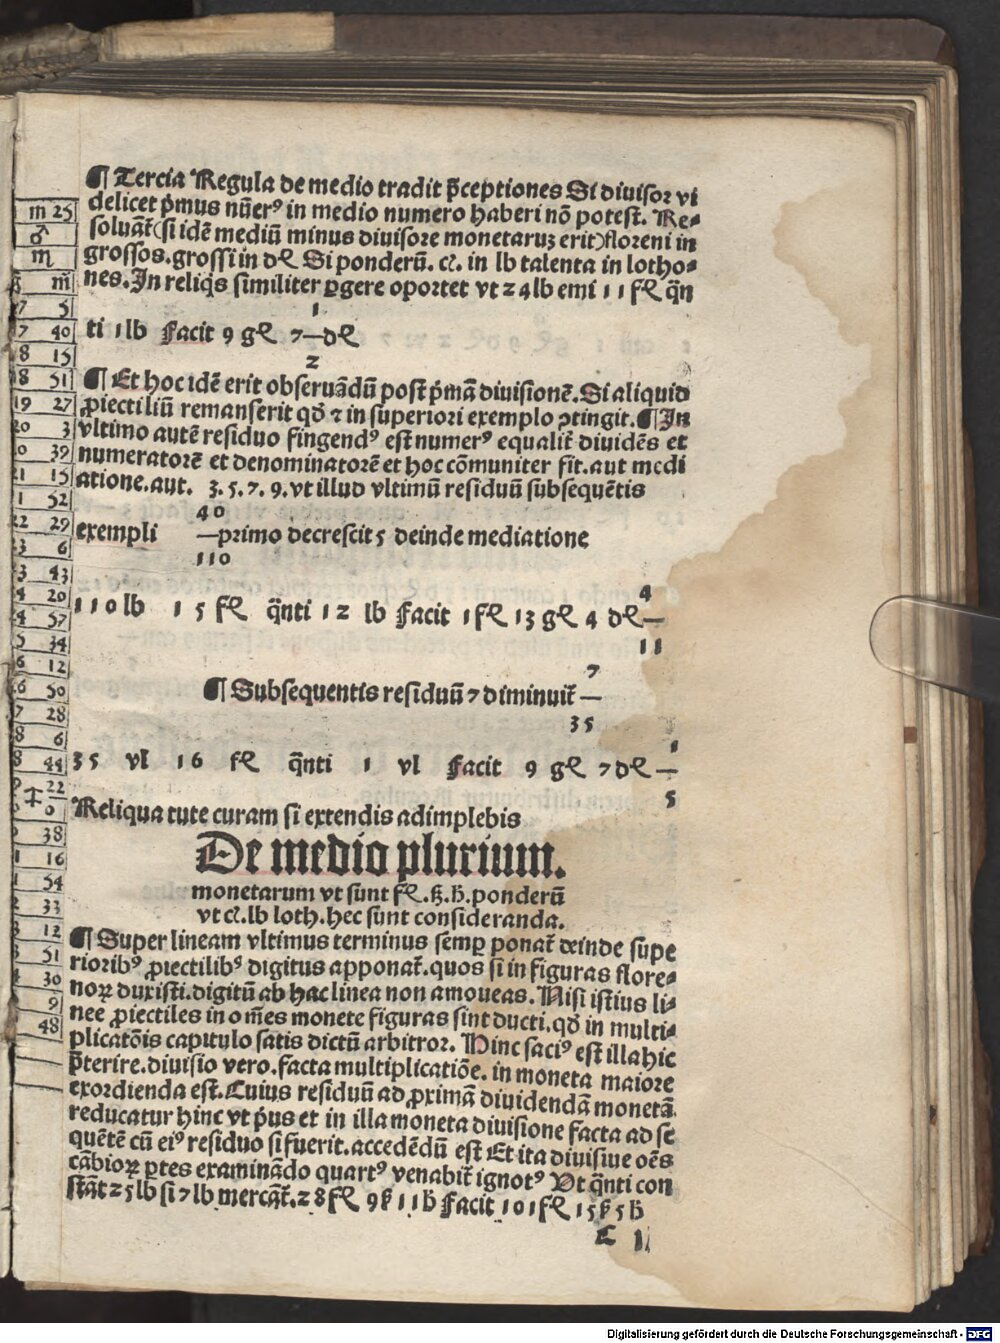 ¶ Tercia Regula de medio tradit p̄ceptiones Si diuisor vi
delicet p̍mus nūerꝰ in medio numero haberi nō potest. Re⸗
soluat̄(si idē mediū minus diuisore monetaruꝫ erit)floreni in
grossos.grossi in dꝭ Si ponderū. cꝉ. in lb talenta in lotho⸗
nes.In reliq̍s similiter ꝑgere oportet vt 24lb emi 11 fꝭ q̄n
1
ti 1lb Facit 9 gꝭ 7—dꝭ
2
¶ Et hoc idē erit obseruādū post p̍mā diuisionē.Si aliquid
ꝓiectiliū remanserit qd̛ ⁊ in superiori exemplo ↄtingit.¶In
vltimo autē residuo fingendꝰ est numerꝰ equalit̄ diuidēs et
numeratorē et denominatorē et hoc cōmuniter fit.aut medi
atione.aut. 3.5.7.9.vt illud vltimū residuū subsequētis
40
exempli —primo decrescit 5 deinde mediatione
110
4
110lb 15 fꝭ q̄nti 12 lb Facit 1fꝭ 13 gꝭ 4 dꝭ—
11
7
¶Subsequentis residuū 7 diminuit̄ —
35
1
35 vl 16 fꝭ q̄nti 1 vl Facit 9 gꝭ 7dꝭ—
5
Reliqua tute curam si extendis adimplebis
De medio plurium.
monetarum vt sunt fꝭ.ꝶ.h̄.ponderū
vt cꝉ.lb loth.hec sunt consideranda.
¶ Super lineam vltimus terminus semꝑ ponat̄ deinde supe
rioribꝰ ꝓiectilibꝰ digitus apponat̄.quos si in figuras flore⸗
noꝝ duxisti.digitū ab hac linea non amoueas.Nisi istius li⸗
nee ꝓiectiles in om̄es monete figuras sint ducti.qd̛ in multi⸗
plicatōis capitulo satis dictū arbitror. Hinc saciꝰ est illa hic
p̄terire.diuisio vero.facta multiplicatiōe.in moneta maiore
exordienda est.Cuius residuū ad ꝓximā diuidendā monetā
reducatur hinc vt p̍us et in illa moneta diuisione facta ad se
quētē cū eiꝰ residuo si fuerit.accedēdū est Et ita diuisiue oēs
cābioꝝ ꝑtes examinādo quartꝰ venabit̄ ignotꝰ Vt q̄nti con
stāt 25lb si 7lb mercāt̄.28fꝭ 9ꝶ 11h̄ Facit 101fꝭ 15ꝶ 5h̄
m̄ 25
♂
m
m̄
7 5
7 40
8 15
18 51
19 27
20 3
0 39
21 15
1 52
22 29
3 6
3 43
4 20
4 57
5 34
6 12
6 50
7 28
8 6
8 44
22
0
38
1 16
1 54
2 33
3 12
3 51
4 30
9
48
Digitalisierung gefördert durch die Deutsche Forschungsgemeinschaft - DFG